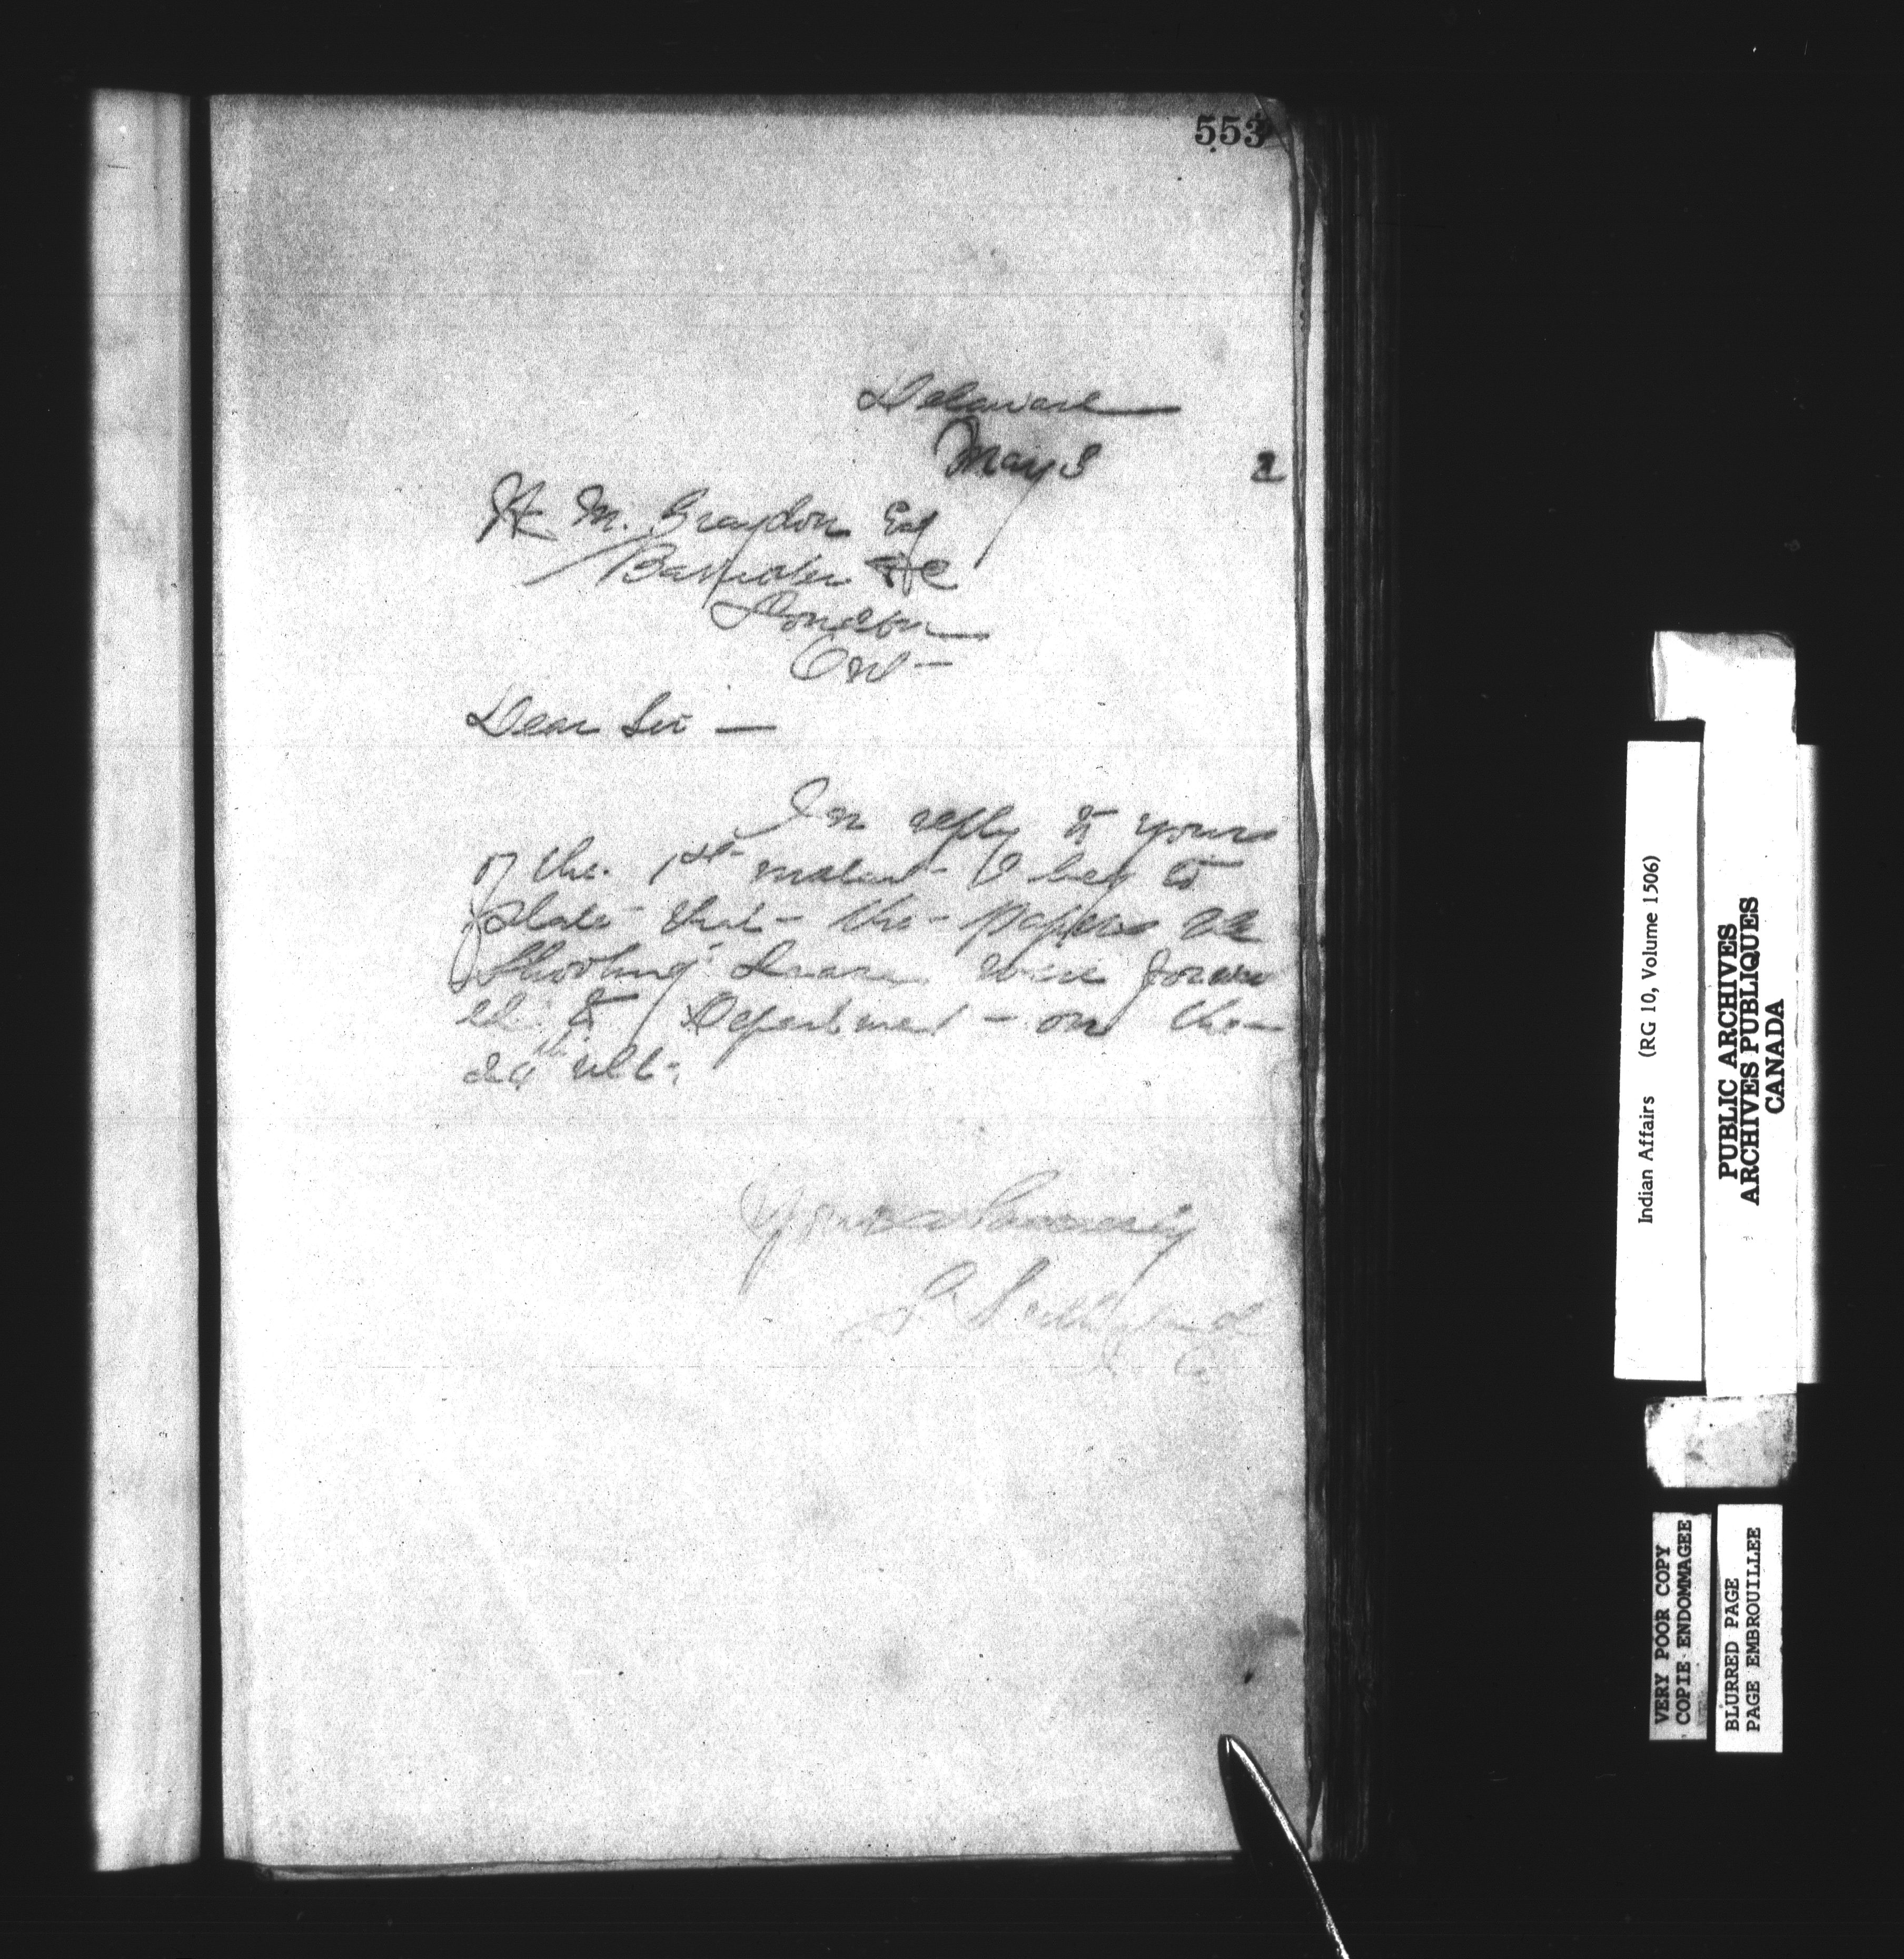 553
Delaware
May 3 2
M. Graydon Esq
Barrister &c
London
Ont —
Dear Sir —
In reply to yours
of the 1st instant I beg to
state that the papers re
Shooting were forward
ed to Department on the
ult.
Yours Sincerely
S. Sutherland
Indian Affairs (RG 10, Volume 1506)
PUBLIC ARCHIVES
ARCHIVES PUBLIQUES
CANADA
VERY POOR COPY
COPIE ENDOMMAGEE
BLURRED PAGE
PAGE EMBROUILLEE